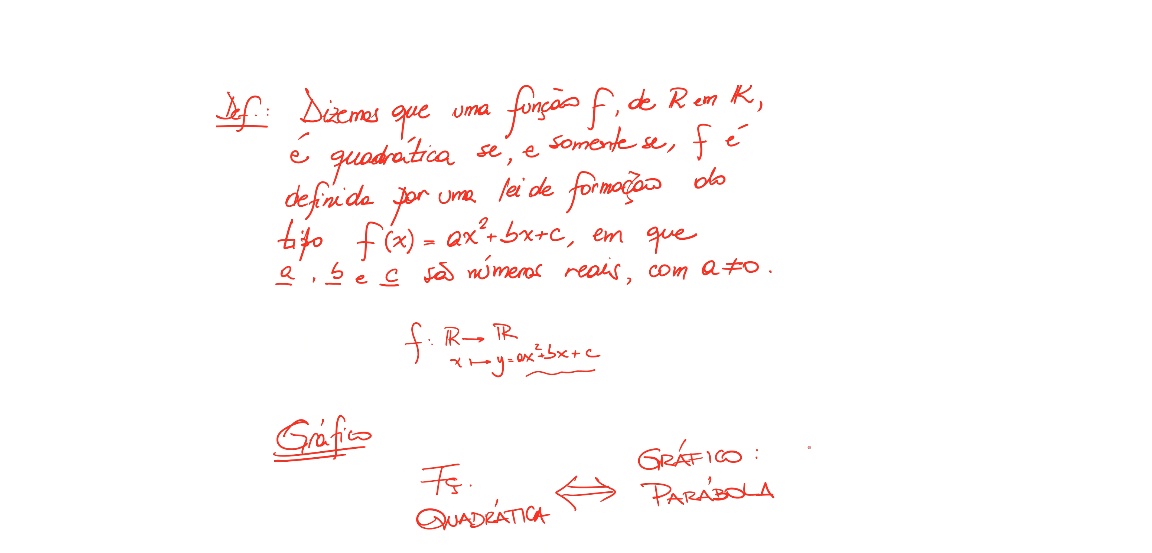 Def.: Dizemos que uma função f, de R em R,
é quadrática se, e somente se, f é
definida por uma lei de formação do
tipo f(x) = ax²+bx+c, em que
a, b e c são números reais, com a≠0.
f: ℝ → ℝ
x ↦ y=ax²+bx+c
Gráfico
Fç.
QUADRÁTICA
⟺
GRÁFICO:
PARÁBOLA